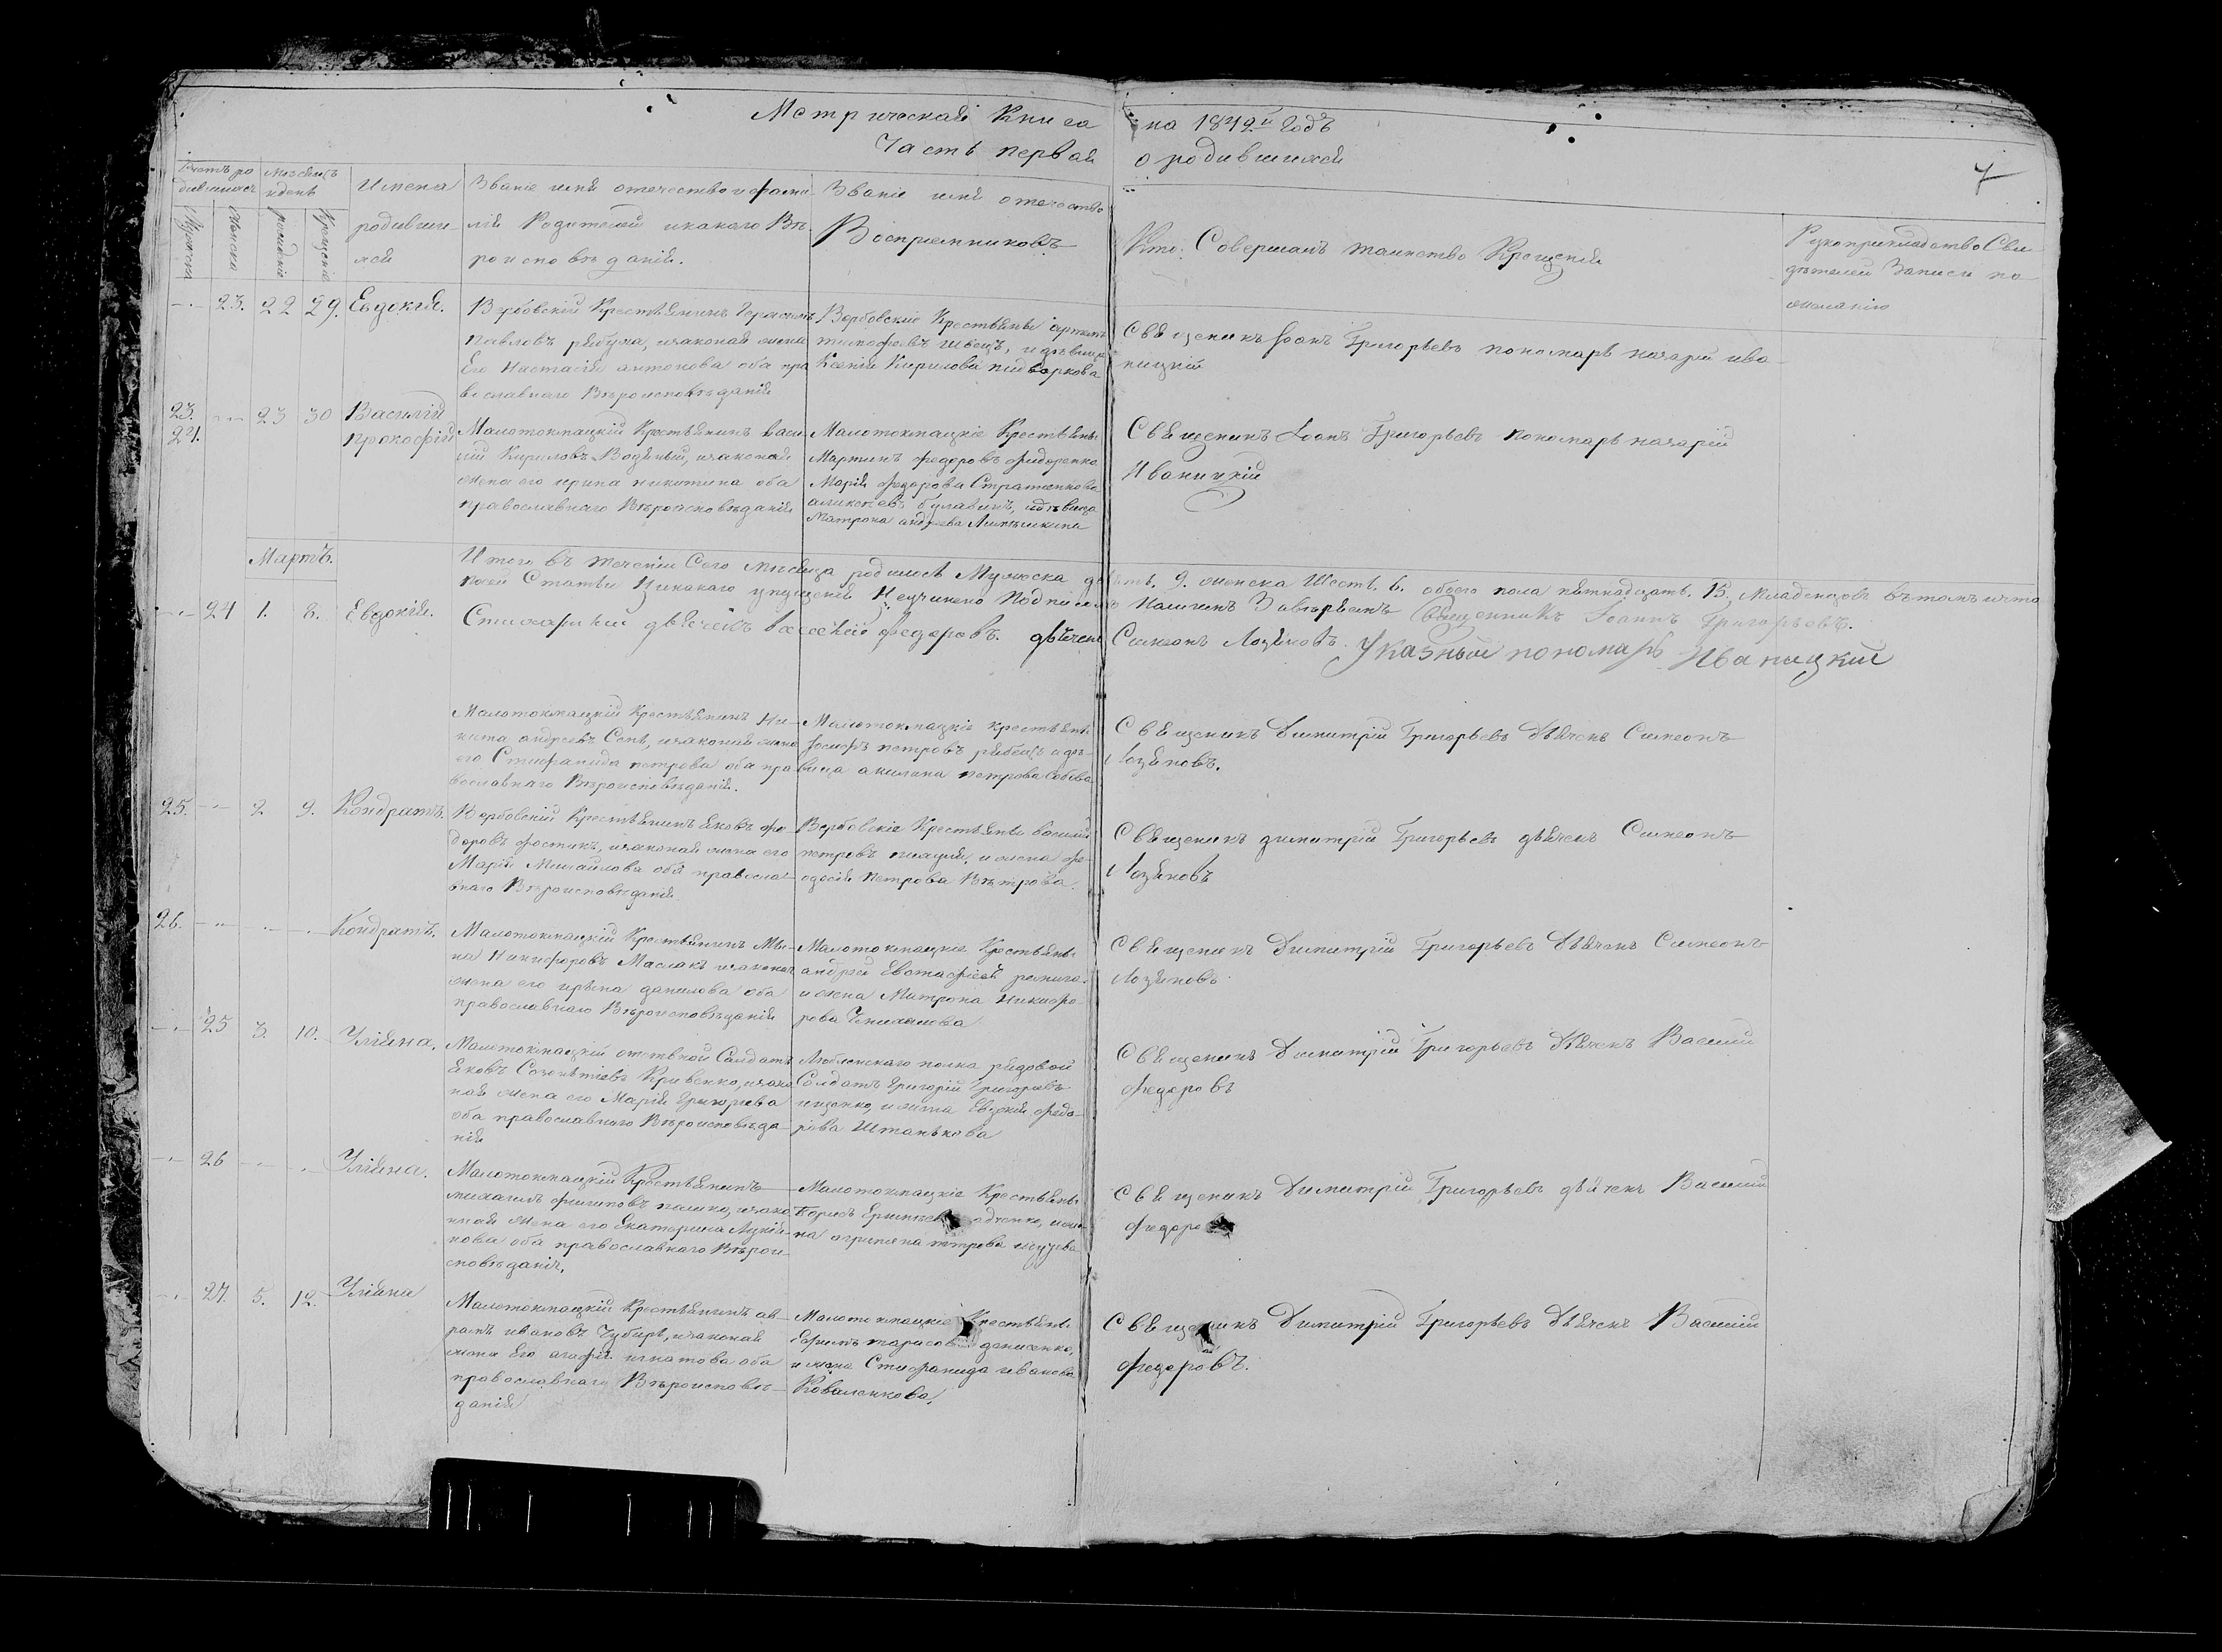 Метрическая Книга на 1842й Годъ
Часть первая о родившихся
7
Счетъ ро
дившихся
Мѣсяцъ
и день
Имена
родивши
хся
Званіе имя отечество и фами
лія Родителей и какого Вѣ
роисповѣданія.
Званіе имя отечество
Воспріемниковъ
Кто Совершалъ таинство Крещенія
Рукоприкладство Сви
дѣтелей Записи по
желанію
23. 22 29. Евдокія.
Вербовскій Крестьянинъ Герасимъ
Павловъ рябуха, изаконая жена
Его Настасія антонова оба пра
вославнаго Вѣроисповѣданія
Вербовскіе Крестьяне артемъ
тимофѣевъ Швецъ, и дѣвица
Ксенія Кирилова
Священикъ Іоанъ Григорьевъ пономарь назарій ива
ницкій
23. 23 30 Василій
24. прокофій
Малотокмацкій Крестьянинъ васи
лій Кириловъ Водяный, изаконая
жена его ирина никитина оба
православнаго Вѣроисповѣданія
Малотокмацкіе Крестьяне
Мартинъ федоровъ фидоренко
Марія федорова Стратенкова
булавинъ, идѣвица
Матрона андреева
Священикъ Іоанъ Григорьевъ пономарь назарій
Иваницкій
Мартъ.
Итого въ теченіи Сего мѣсяца родилось Мужеска девять. 9. женска Шесть. 6. обоего пола пятнадцать. 15. Младенцовъ вътомъ ичто
посей Статьи Никакаго упущенія Неучинено Подписомъ Нашимъ Завѣряемъ Священникъ Іоаннъ Григорьевъ.
Стихарный дьячекъ василій федоровъ. дьячекъ Симеонъ Лозяновъ. Указный пономарь Иваницкій
24 1. 8. Евдокія.
Малотокмацкій Крестьянинъ Ни
кита андреевъ Сепь, изаконая жена
его Стифанида петрова оба пра
вославнаго Вѣроисповѣданія.
Малотокмацкіе крестьяне
Іосифъ петровъ рябецъ и дѣ
вица акилина петрова
Священикъ Димитрій Григорьевъ Дьячекъ Симеонъ
Лозяновъ.
25. 2 9. Кондратъ.
Вербовскій Крестьянинъ яковъ фе
доровъ фостикъ, изаконая жена его
Марія Михайлова оба правосла
внаго Вѣроисповѣданія
Вербовскіе Крестьяне василій
петровъ, и жена фе
одосія Петрова Вѣтрова.
Священикъ димитрій Григорьевъ дьячекъ Симеонъ
Лозяновъ
26. Кондратъ.
Малотокмацкій Крестьянинъ Ми
на Никифоровъ Маслакъ изаконая
жена его ирина данилова оба
православнаго Вѣроисповѣданія
Малотокмацкіе Крестьяне
андрей Евстафіевъ
и жена Матрона Никифо
рова
Священикъ Димитрій Григорьевъ Дьячекъ Симеонъ
Лозяновъ
25 3. 10. Уліяна.
Малотокмацкій отставной Салдатъ
яковъ Кривенко, изако
ная жена его Марія Григорьева
оба православнаго Вѣроисповѣда
нія
Люблинскаго полка рядовой
Салдатъ Григорій Григорьевъ
ищенко, и жена Евдокія федо
рова Штанькова
Священикъ Димитрій Григорьевъ Дьячекъ Василій
федоровъ
26 Уліяна.
Малотокмацкій Крестьянинъ
михаилъ филиповъ пашко, изако
нная жена его Екатерина
оба православнаго Вѣрои
сповѣданія.
Малотокмацкіе Крестьяне
Борисъ
на агрипена петрова
Священикъ Димитрій Григорьевъ дьячекъ Василій
федоровъ
27. 5. 12. Уліяна
Малотокмацкій Крестьянинъ ав
рамъ ивановъ Чубирь, изаконая
жена Его агафія игнатова оба
православнаго Вѣроисповѣ
данія
Малотокмацкіе Крестьяне
Ефимъ тарасовъ денисенко,
и жена Стифанида иванова
Коваленкова,
Священикъ Димитрій Григорьевъ Дьячекъ Василій
федоровъ.